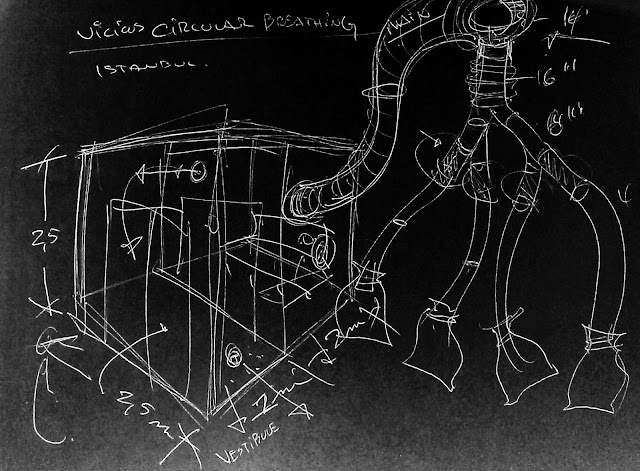 VICIOUS CIRCULAR BREATHING
ISTANBUL.
MAIN
16"
2,5
2,5 m
2 m
2 m
VESTIBULE